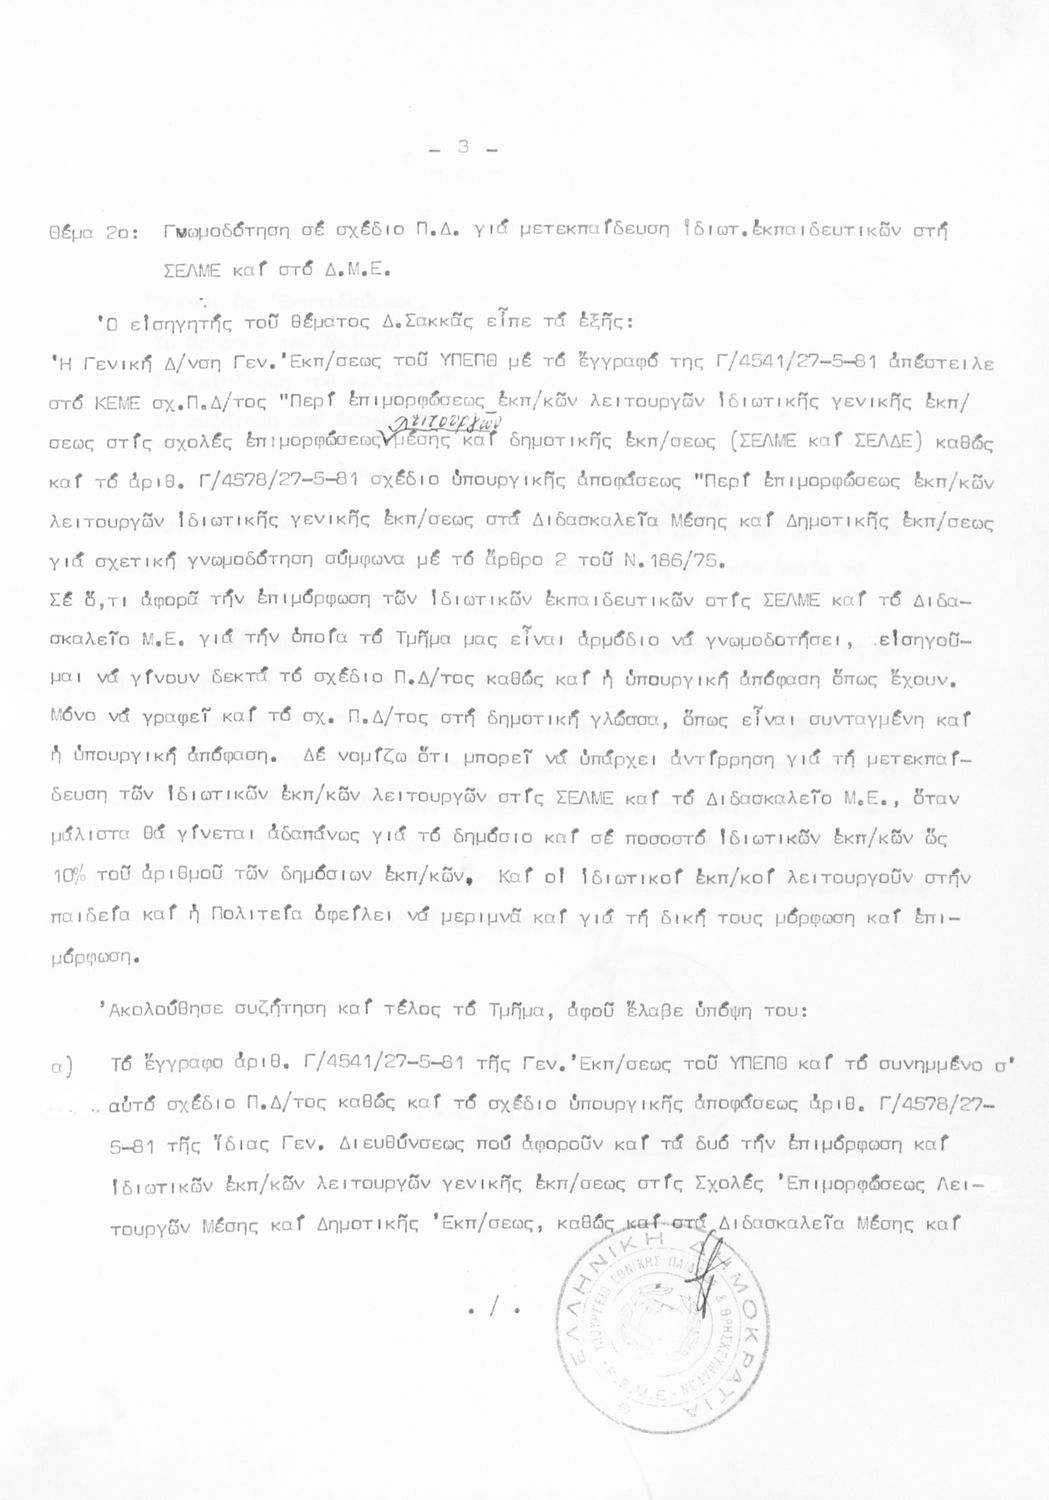 - 3 -
Θέμα 2ο: Γνωμοδότηση σέ σχέδιο Π.Δ. γιά μετεκπαίδευση ἰδιωτ.ἐκπαιδευτικῶν στή
ΣΕΛΜΕ καί στό Δ.Μ.Ε.
Ὁ εἰσηγητής τοῦ θέματος Δ.Σακκᾶς εἶπε τά ἑξῆς:
Ἡ Γενική Δ/νση Γεν.Ἐκπ/σεως τοῦ ΥΠΕΠΘ μέ τό ἔγγραφό της Γ/4541/27-5-81 ἀπέστειλε
στό ΚΕΜΕ σχ.Π.Δ/τος "Περί ἐπιμορφώσεως ἐκπ/κῶν λειτουργῶν ἰδιωτικῆς γενικῆς ἐκπ/
λειτουργῶν
σεως στίς σχολές ἐπιμορφώσεως μέσης καί δημοτικῆς ἐκπ/σεως (ΣΕΛΜΕ καί ΣΕΛΔΕ) καθώς
καί τό ἀριθ. Γ/4578/27-5-81 σχέδιο ὑπουργικῆς ἀποφάσεως "Περί ἐπιμορφώσεως ἐκπ/κῶν
λειτουργῶν ἰδιωτικῆς γενικῆς ἐκπ/σεως στά Διδασκαλεῖα Μέσης καί Δημοτικῆς ἐκπ/σεως
γιά σχετική γνωμοδότηση σύμφωνα μέ τό ἄρθρο 2 τοῦ Ν.186/75.
Σέ ὅ,τι ἀφορᾶ τήν ἐπιμόρφωση τῶν ἰδιωτικῶν ἐκπαιδευτικῶν στίς ΣΕΛΜΕ καί τό Διδα-
σκαλεῖο Μ.Ε. γιά τήν ὁποία τό Τμῆμα μας εἶναι ἁρμόδιο νά γνωμοδοτήσει, εἰσηγοῦ-
μαι νά γίνουν δεκτά τό σχέδιο Π.Δ/τος καθώς καί ἡ ὑπουργική ἀπόφαση ὅπως ἔχουν.
Μόνο νά γραφεῖ καί τό σχ. Π.Δ/τος στή δημοτική γλώσσα, ὅπως εἶναι συνταγμένη καί
ἡ ὑπουργική ἀπόφαση. Δέ νομίζω ὅτι μπορεῖ νά ὑπάρχει ἀντίρρηση γιά τή μετεκπαί-
δευση τῶν ἰδιωτικῶν ἐκπ/κῶν λειτουργῶν στίς ΣΕΛΜΕ καί τό Διδασκαλεῖο Μ.Ε., ὅταν
μάλιστα θά γίνεται ἀδαπάνως γιά τό δημόσιο καί σέ ποσοστό ἰδιωτικῶν ἐκπ/κῶν ὥς
10% τοῦ ἀριθμοῦ τῶν δημόσιων ἐκπ/κῶν. Καί οἱ ἰδιωτικοί ἐκπ/κοί λειτουργοῦν στήν
παιδεία καί ἡ Πολιτεία ὀφείλει νά μεριμνᾶ καί γιά τή δική τους μόρφωση καί ἐπι-
μόρφωση.
Ἀκολούθησε συζήτηση καί τέλος τό Τμῆμα, ἀφοῦ ἔλαβε ὑπόψη του:
α) Τό ἔγγραφο ἀριθ. Γ/4541/27-5-81 τῆς Γεν.Ἐκπ/σεως τοῦ ΥΠΕΠΘ καί τό συνημμένο σ'
αὐτό σχέδιο Π.Δ/τος καθώς καί τό σχέδιο ὑπουργικῆς ἀποφάσεως ἀριθ. Γ/4578/27-
5-81 τῆς ἴδιας Γεν. Διευθύνσεως πού ἀφοροῦν καί τά δυό τήν ἐπιμόρφωση καί
ἰδιωτικῶν ἐκπ/κῶν λειτουργῶν γενικῆς ἐκπ/σεως στίς Σχολές Ἐπιμορφώσεως Λει-
τουργῶν Μέσης καί Δημοτικῆς Ἐκπ/σεως, καθώς καί στά Διδασκαλεῖα Μέσης καί
./.
ΕΛΛΗΝΙΚΗ ΔΗΜΟΚΡΑΤΙΑ
ΥΠΟΥΡΓΕΙΟ ΕΘΝΙΚΗΣ ΠΑΙΔΕΙΑΣ & ΘΡΗΣΚΕΥΜΑΤΩΝ
Κ.Ε.Μ.Ε.